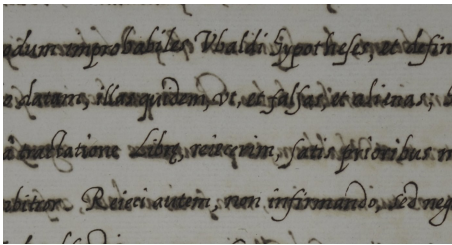 odum improbabiles Vbaldi hypotheses, et defin
a datam, illas quidem, vt, et falsas, et alienas; b
a tractatione Libri, reiecerim, satis prioribus n
abitror. Reieci autem, non infirmando, sed neg